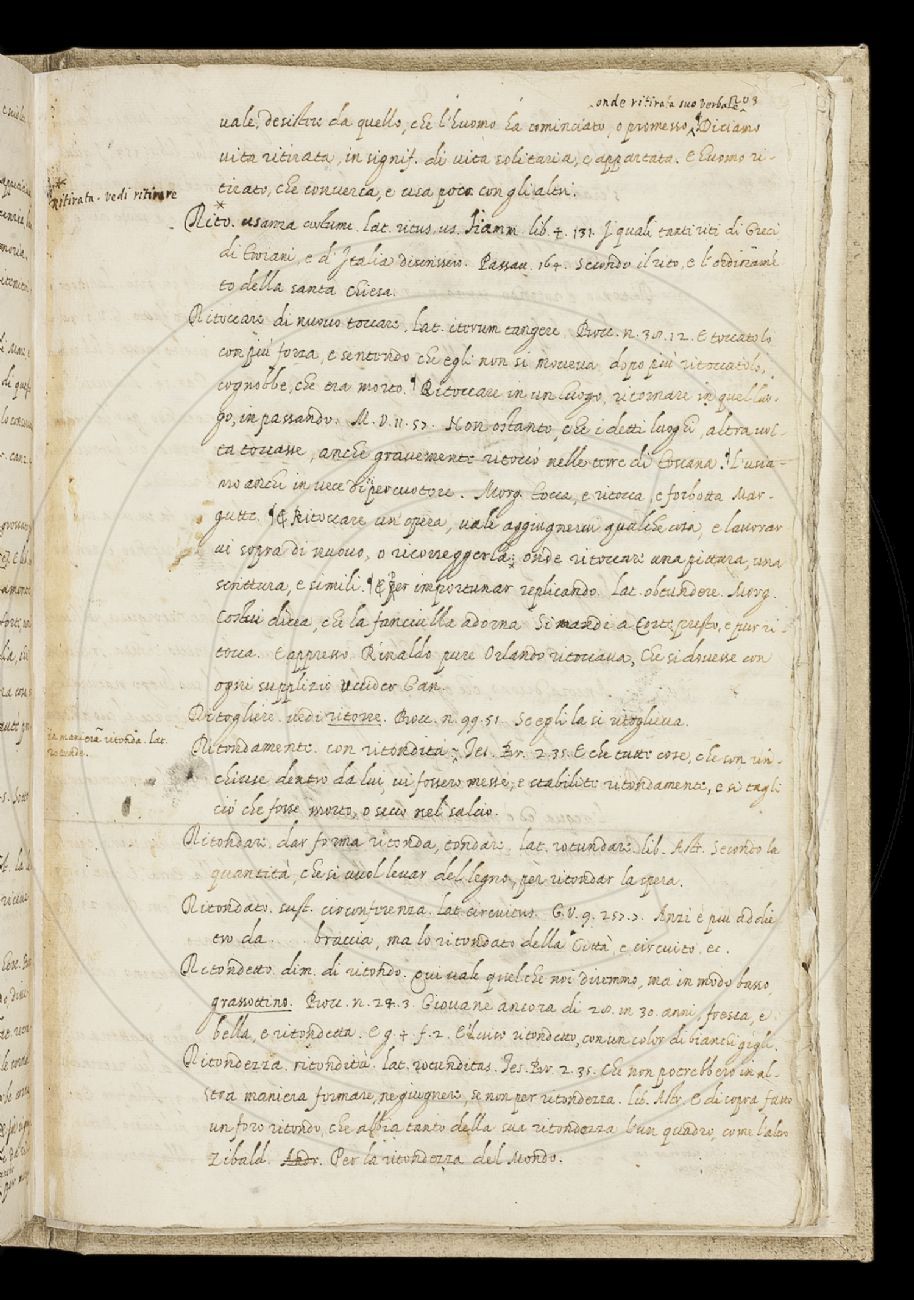 onde ritirata suo verbale
vale, desistere da quello, che l'huomo ha cominciato, o promesso. Diciamo
vita ritirata, in signif. di vita solitaria, e appartata. E huomo ri-
tirato, che conversa, e usa poco con gli altri.
Ritirata. vedi ritirare
Rito. usanza costume. lat. ritus, us. Fiamm. lib. 4. 131. I quali tanti riti di Greci
di Troiani, e d'Italia discrissero. Passav. 164. Secondo il rito, e l'ordiname
to della santa Chiesa.
Ritoccare di nuovo toccare, lat. iterum tangere. Bocc. n. 30. 12. E toccatolo
con più forza, e sentendo che egli non si moveva dopo più ritoccatolo,
cognobbe, che era morto. Ritoccare in un luogo, ritornare in quel luo-
go, in passando. M. V. 11. 57. Non ostante, che i detti luoghi, altra vol-
ta toccasse, anche gravemente ritoccò nelle terre di Toscana. L'usia-
mo anche in vece di percuotere. Morg. Tocca, e ritocca, e forbotta Mar-
gutte. E Ritoccare un opera, vale aggiugnervi qualche cosa, e lavorar
vi sopra di nuovo, o ricorreggerla; onde ritoccare una pittura, una
scrittura, e simili. E per importunar replicando. lat. obtundere. Morg.
Costui dicea, che la fanciulla adorna Si mandi a Corte presto, e pur ri-
tocca. E appresso. Rinaldo pure Orlando ritoccava, Che si dovesse con
ogni supplizio uccider Gan.
Ritogliere. vedi ritorre. Bocc. n. 99. 51. Scegli la si ritoglieva.
in maniera ritonda. lat.
rotunde.
Ritondamente. con ritondità. Tes. Br. 2. 35. E che tutte cose, che son rin-
chiuse dentro da lui, vi fossero messe, e stabilite ritondamente, e si tagli
ciò che fosse morto, o secco nel salcio.
Ritondare. dar forma ritonda, tondare. lat. rotundare. lib. Astr. Secondo la
quantità, che si vuol levar del legno, per ritondar la spera.
Ritondato. sust. circonferenza. lat. circuitus. G. V. 9. 257. 3. Anzi è più addie
tro da . . braccia, ma lo ritondato della Città, e circuito, ec.
Ritondetto. dim. di ritondo. Qui vale quel che noi diremmo, ma in modo basso,
grassottino. Bocc. n. 24. 3. Giovane ancora di 28. in 30. anni, fresca, e
bella, e ritondetta. E g. 4. f. 2. E'l viso ritondetto, con un color di bianchi gigli.
Ritondezza. ritondità. lat. rotunditas. Tes. Br. 2. 35. Che non potrebbero in al-
tra maniera formare, ne giugnere, se non per ritondezza. lib. Astr. E di sopra fatto
un foro ritondo, che abbia tanto della sua ritondezza l'un quadro, come l'altro
Zibald. Andr. Per la ritondezza del Mondo.